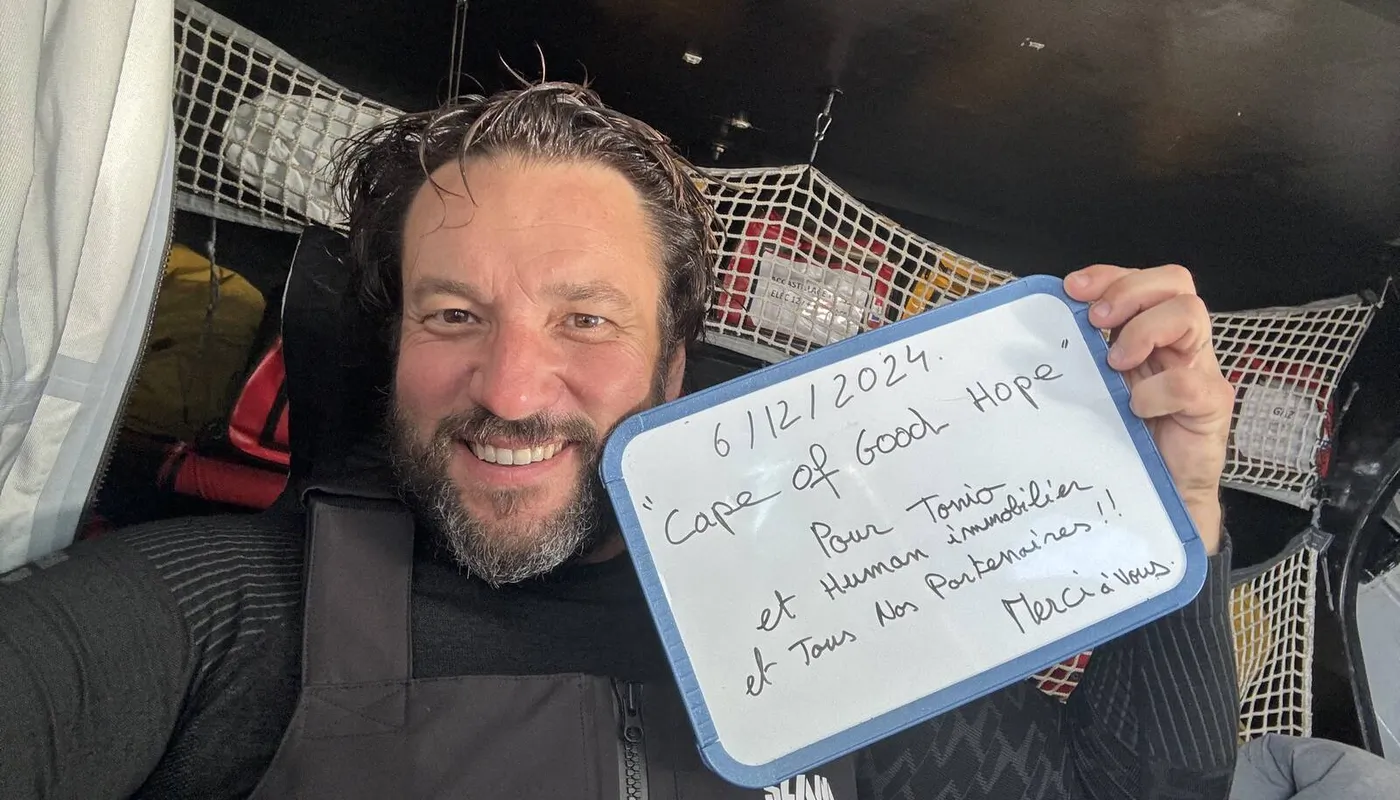 6/12/2024.
"Cape of Good Hope"
Pour Tonio
et Human immobilier
et Tous Nos Partenaires!!
Merci à Vous.